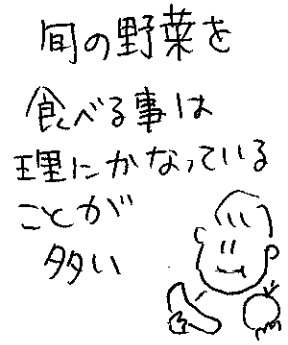 旬の野菜を
食べる事は
理にかなっている
ことが
多い